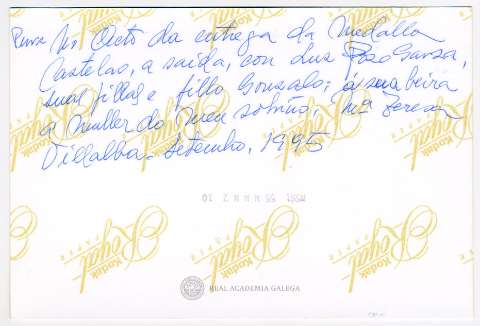 No Acto da entrega da Medalla
Castelao, a saída, con Luz Pozo Garza,
suas fillas e fillo Gonzalo; á sua beira
a muller do meu sobriño, Mª Teresa
Villalba. Setembro, 1995
REAL ACADEMIA GALEGA
Kodak
Royal
PAPER